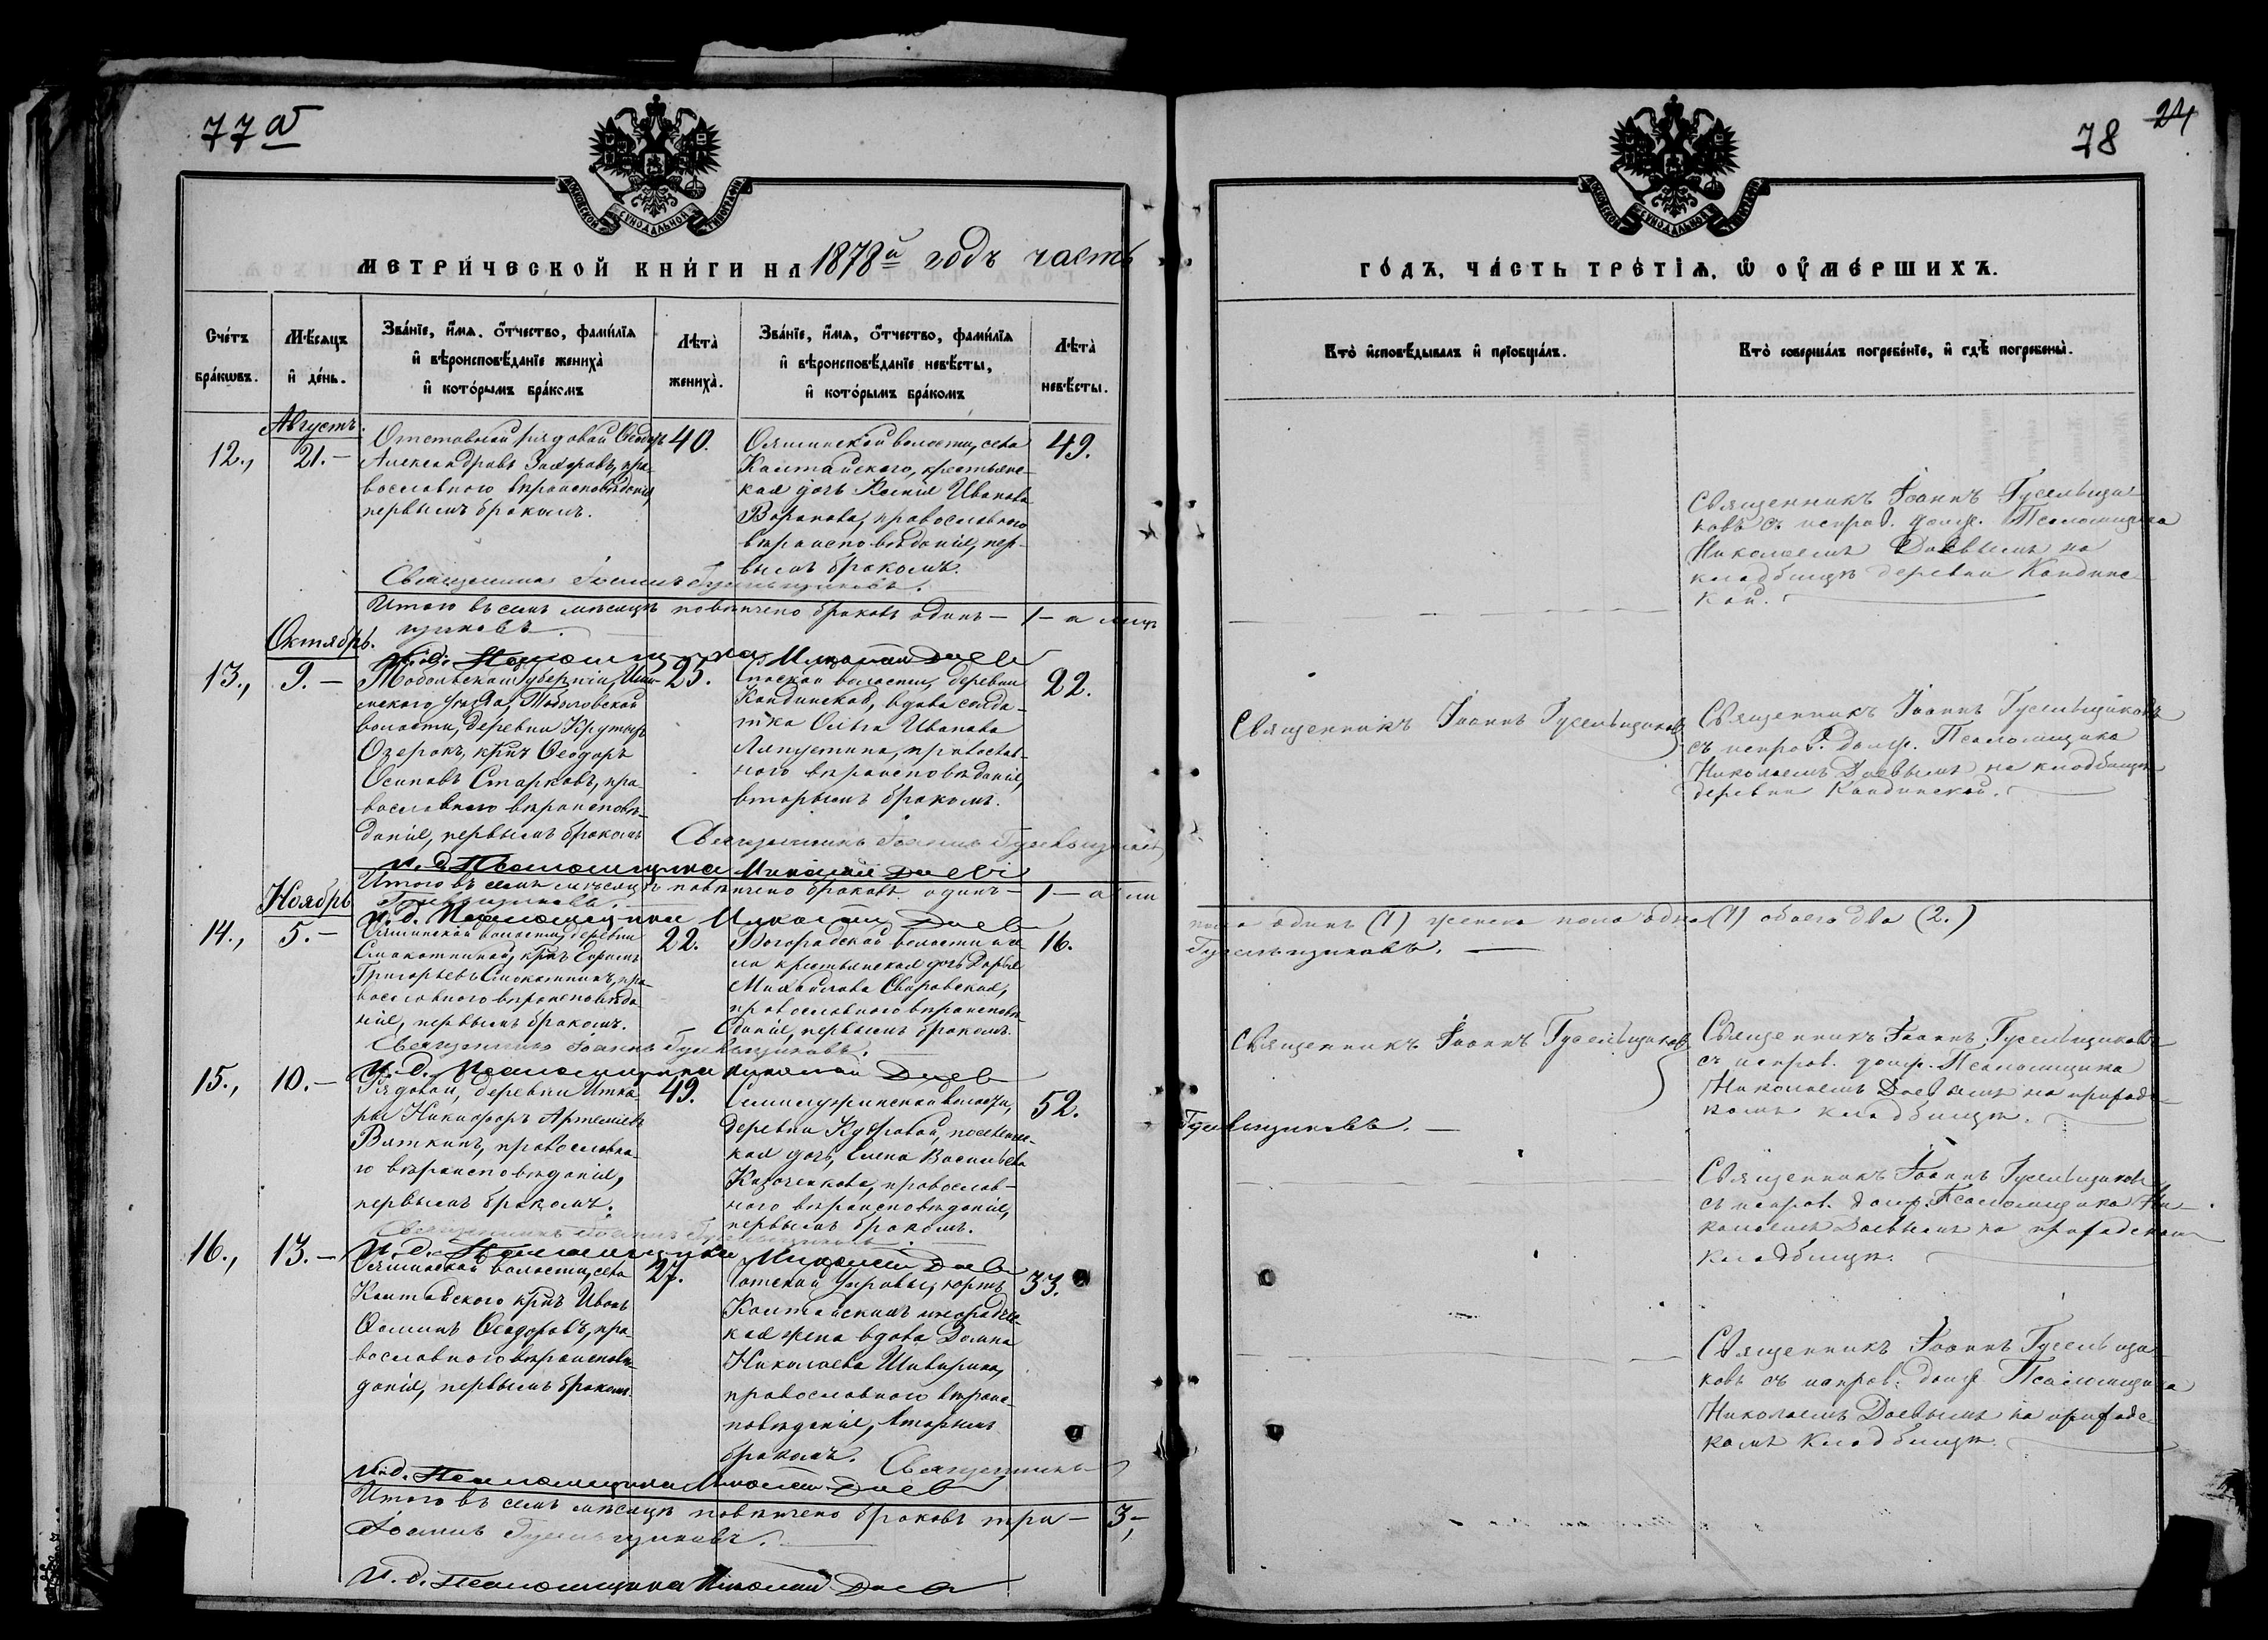 77 а
МОСКОВСКОЙ СѴНОДАЛЬНОЙ ТИПОГРАФІИ
МЕТРИ́ЧЕСКОЙ КНИ́ГИ НА 1878й годъ часть
Сче́тъ бра́кωвъ.
Мѣ́сяцъ и҆ де́нь.
Зва́нїе, и҆́мѧ, ѻ҆́тчество, фами́лїѧ
и҆ вѣроисповѣ́данїе жениха̀
и҆ кото́рымъ бра́комъ
Лѣта̀ жениха̀.
Зва́нїе, и҆́мѧ, ѻ҆́тчество, фами́лїѧ
и҆ вѣроисповѣ́данїе невѣ́сты,
и҆ кото́рымъ бра́комъ
Лѣта̀ невѣ́сты.
Августъ.
12., 21.–
Отставной рядовой Ѳеодоръ
Александровъ Захаровъ, пра-
вославного вѣроисповѣданія,
первымъ бракомъ.
40.
волости, села
Калтайского, крестьянс-
кая дочь Ксенія Иванова
Воронова, православного
вѣроисповѣданія, пер-
вымъ бракомъ.
49.
Священникъ Іоаннъ Гусельщиковъ.
Итого въ семъ мѣсяцѣ повѣнчено браковъ одинъ – 1 –
щиковъ.
И. д. Псаломщика Николай Доев
Октябрь.
13., 9.–
Тобольской Губерніи, Иши-
мского уѣзда,
волости, деревни Крутыхъ
Озерокъ, крнъ Ѳеодоръ
Осиповъ Старковъ, пра-
вославного вѣроисповѣ-
данія, первымъ бракомъ
25.
Спаской волости, деревни
Кандинской, вдова солда-
тка Ольга Иванова
Лапустина, православ-
ного вѣроисповѣданія,
вторымъ бракомъ.
22.
Священникъ Іоаннъ Гусельщиковъ
И. д. Псаломщика Николай Доев
Итого въ семъ мѣсяцѣ повѣнчено браковъ одинъ – 1 –
Гусельщиковъ.
И. д. Псаломщика Николай Доев
Ноябрь
14., 5.–
волости, деревни
крнъ
Григорьевъ пра-
вославного вѣроисповѣда-
нія, первымъ бракомъ.
22.
Богородской волости и се-
ла крестьянская дочь Дарья
Михайлова
православного вѣроисповѣ-
данія, первымъ бракомъ.
16.
Священникъ Іоаннъ Гусельщиковъ.
И. д. Псаломщика Николай Доев
15., 10.–
Рядовой, деревни Итка-
ры Никифоръ Артемьевъ
Вяткинъ, православна-
го вѣроисповѣданія,
первымъ бракомъ.
49.
Семилужинской волости,
деревни поселенчес-
кая дочь, Елена Васильева
православ-
ного вѣроисповѣданія,
первымъ бракомъ.
52.
Священникъ Іоаннъ Гусельщиковъ.
И. д. Псаломщика Николай Доев
16., 13.–
волости, села
Калтайского крнъ Иванъ
Ѳоминъ Ѳеодоровъ, пра-
вославного вѣроисповѣ-
данія, первымъ бракомъ.
27.
Управы, юртъ
Калтайскихъ инородчес-
кая жена вдова Домна
Николаева
православного вѣроис-
повѣданія, вторымъ
бракомъ. Священникъ
33.
И. д. Псаломщика Николай Доев
Итого въ семъ мѣсяцѣ повѣнчено браковъ три – 3 –,
Іоаннъ Гусельщиковъ.
И. д. Псаломщика Николай Доев
78 24
МОСКОВСКОЙ СѴНОДАЛЬНОЙ ТИПОГРАФІИ
ГО́ДЪ, ЧА́СТЬ ТРЕ́ТЇѦ, Ѡ҆ ОУ҆МЕ́РШИХЪ.
Кто̀ и҆сповѣ́дывалъ и҆ прїѡбща́лъ.
Кто̀ соверша́лъ погребе́нїе, и҆ гдѣ̀ погребены̀.
Священникъ Іоаннъ Гусельщи-
ковъ съ исправ. долж. Псаломщика
Николаемъ Доевымъ на
кладбищѣ деревни Кандинс-
кой.
Священникъ Іоаннъ Гусельщиковъ
Священникъ Іоаннъ Гусельщиковъ
съ исправ. долж. Псаломщика
Николаемъ Доевымъ на кладбищѣ
деревни Кандинской.
пола одинъ (1) женска пола одна (1) обоего два (2.)
Гусельщиковъ.
Священникъ Іоаннъ Гусельщиковъ
Священникъ Іоаннъ Гусельщиковъ
съ исправ. долж. Псаломщика
Николаемъ Доевымъ на приходс-
комъ кладбищѣ.
Гусельщиковъ.
Священникъ Іоаннъ Гусельщиковъ
съ исправ. долж. Псаломщика Ни-
колаемъ Доевымъ на приходскомъ
кладбищѣ.
Священникъ Іоаннъ Гусельщи-
ковъ съ исправ. долж. Псаломщика
Николаемъ Доевымъ на приходс-
комъ кладбищѣ.